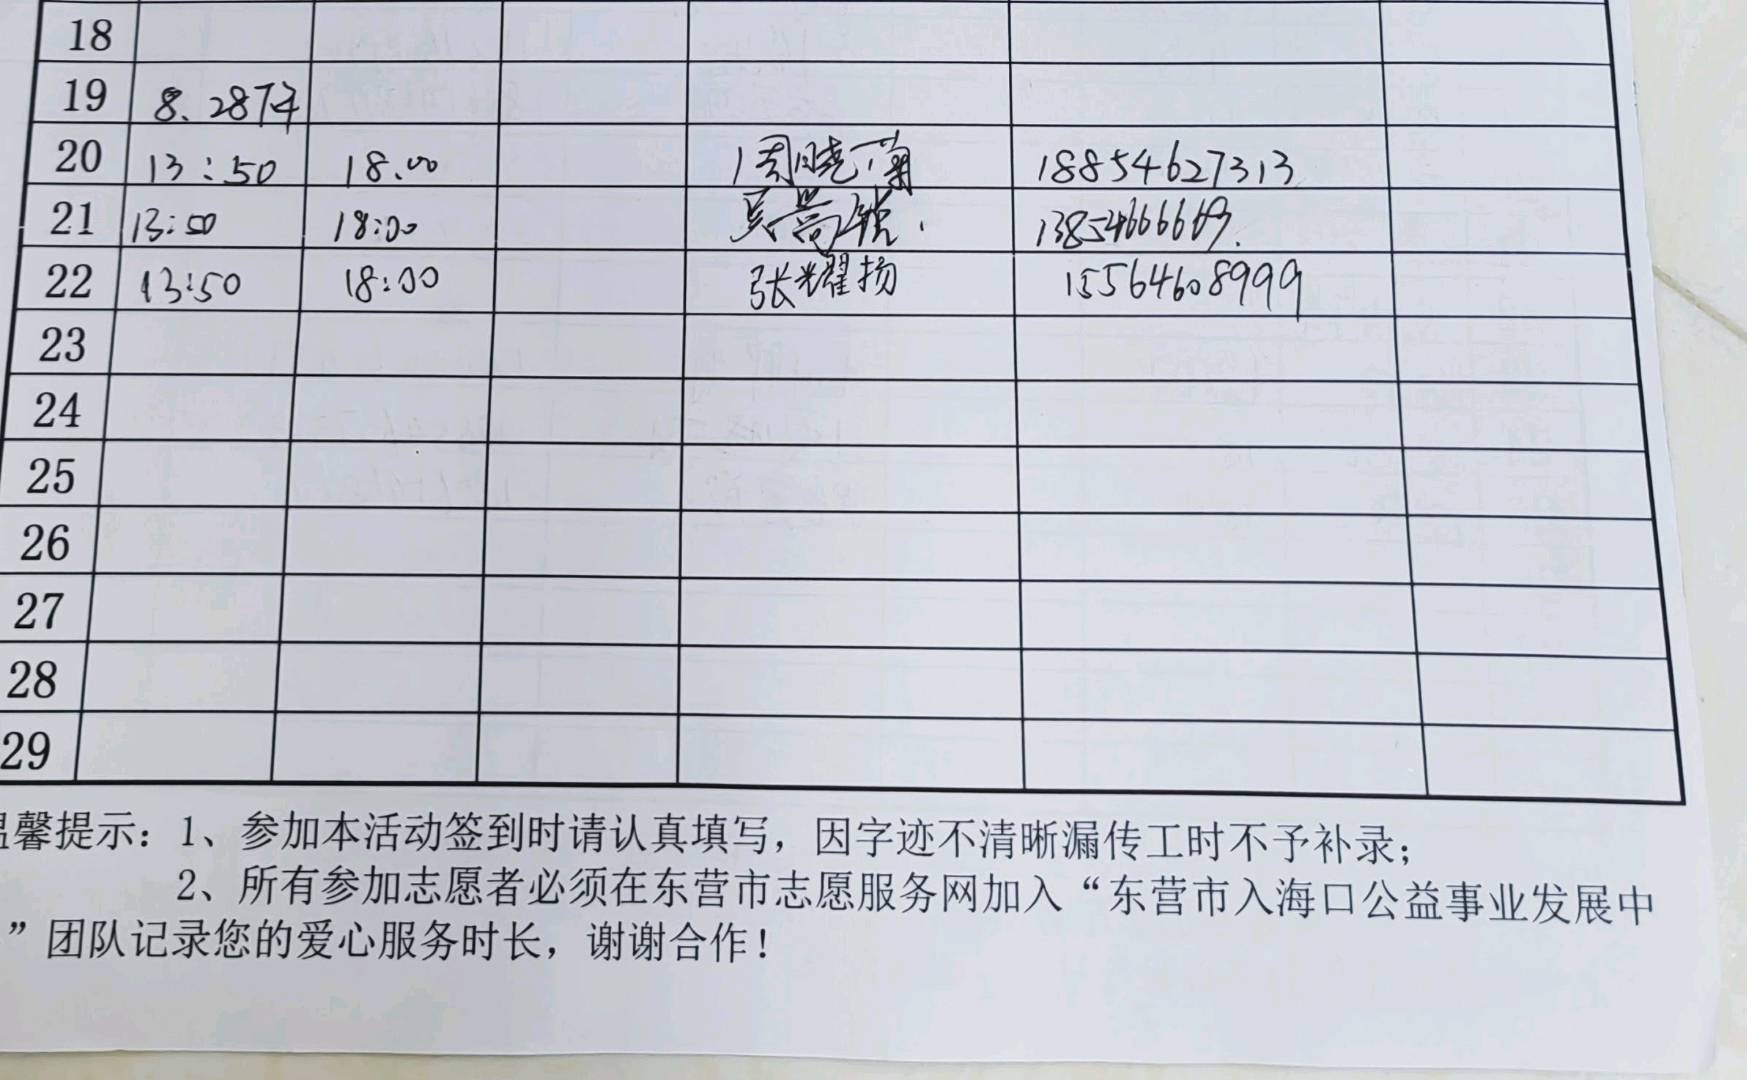 18
19 8.28下午
20 13:50 18.00 周晓菊 18854627313
21 13:50 18:00 13854666669.
22 13:50 18:00 张耀扬 15564608999
23
24
25
26
27
28
29
温馨提示：1、参加本活动签到时请认真填写，因字迹不清晰漏传工时不予补录；
2、所有参加志愿者必须在东营市志愿服务网加入“东营市入海口公益事业发展中
”团队记录您的爱心服务时长，谢谢合作！